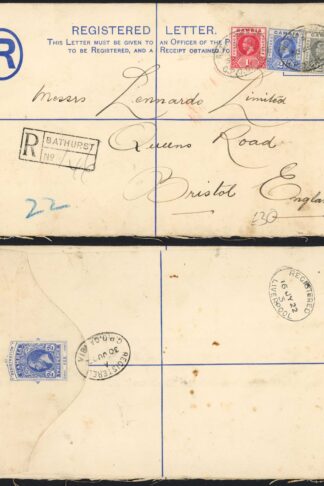 REGISTERED LETTER.
THIS LETTER MUST BE GIVEN TO AN OFFICER OF THE P
TO BE REGISTERED, AND A RECEIPT OBTAINED FO
R
GAMBIA
GAMBIA
Messrs Lennards Limited
R BATHURST
No
Queens Road
Bristol England
22
£30
REGISTERED
16 JY 22
LIVERPOOL
GAMBIA
REGISTERED
G.P.O.
30 JU